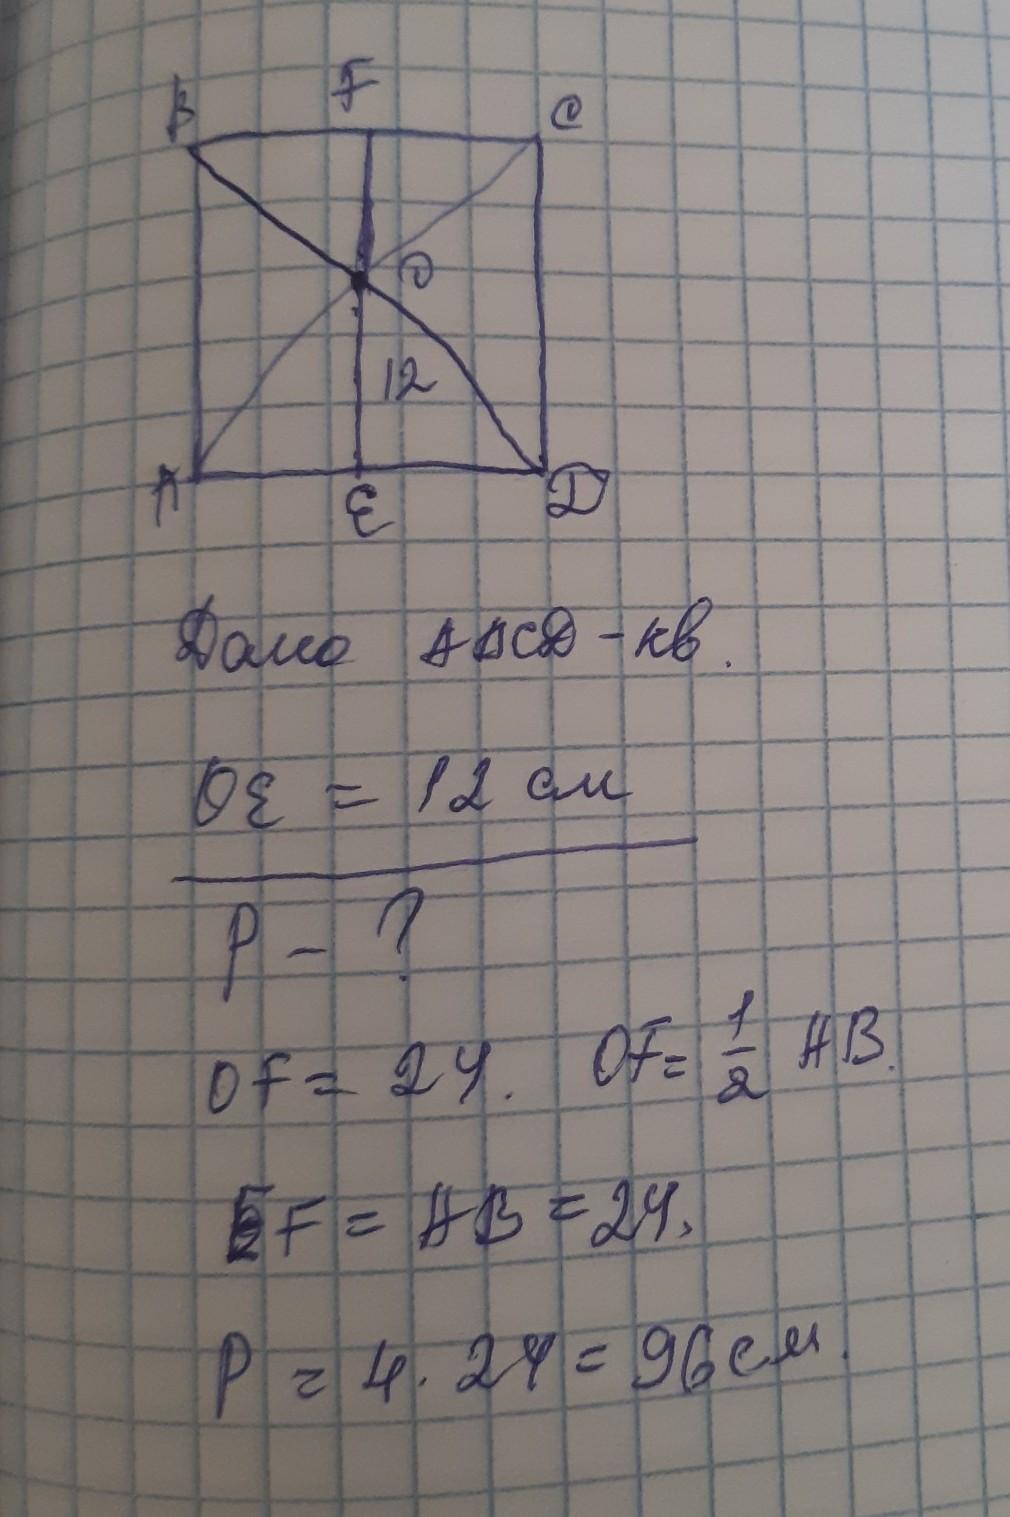 B F C
O
12
A E D
Дано ABCD - кв.
OE = 12 см
P - ?
OF = 24. OF = 1/2 AB.
EF = AB = 24.
P = 4 · 24 = 96 см.